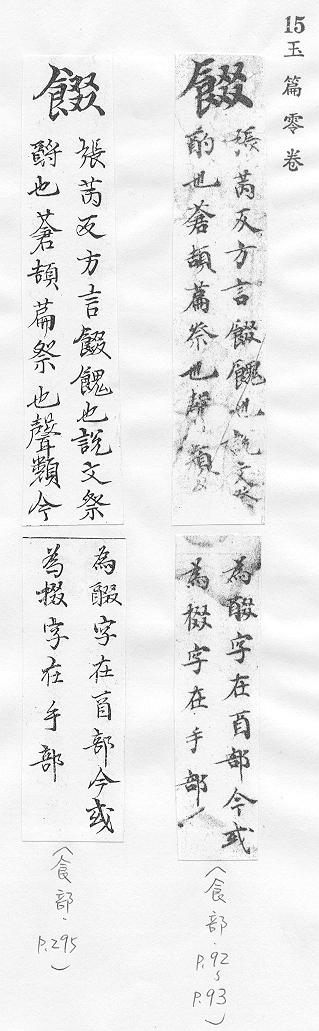 15
玉篇零卷
餟
張芮反方言餟餽也說文祭
酹也蒼頡篇祭也聲類
為醊字在酉部今或
為掇字在手部
(食部. P.92~P.93)
餟
張芮反方言餟餽也說文祭
酹也蒼頡篇祭也聲類今
為醊字在酉部今或
為掇字在手部
(食部. P.295)